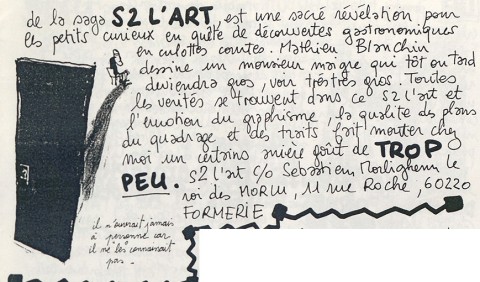 de la saga S2 L'ART, est une sacré révélation pour
les petits curieux en quête de découvertes gastronomiques
en culottes courtes. Mathieu Blanchin
dessine un monsieur maigre qui tôt ou tard
deviendra gros, voir très très gros. Toutes
les vérités se trouvent dans ce S2 l'art et
l'émotion du graphisme, la qualité des plans
du quadrage et des traits fait monter chez
moi un certains amière goût de TROP
PEU. S2 l'art c/o Sebastien Morlighem le
roi des MORLU, 11 rue Roché, 60220
FORMERIE
il n'ouvrait jamais
à personne car
il ne les connaissait
pas.